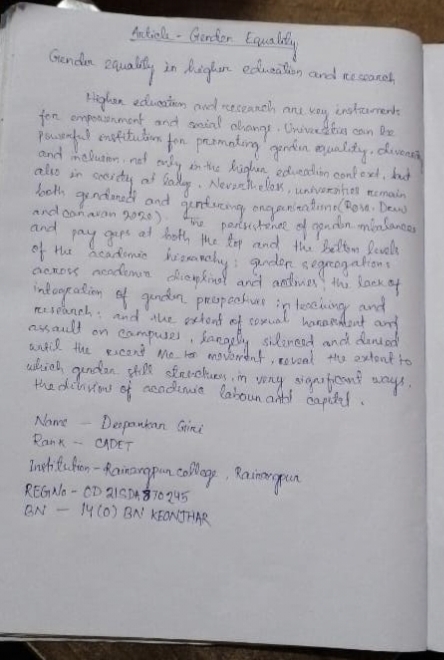 Article - Gender Equality
Gender equality in higher education and research
Higher education and research are key instruments
for empowerment and social change. Universities can be
powerful institutions for promoting gender equality, diversity
and inclusion, not only in the higher education context, but
also in society at large. Nevertheless, universities remain
both gendered and gendering organizations (Rosa, Drew
and canavan 2020). The persistence of gender imbalances
and pay gaps at both the top and the bottom levels
of the academic hierarchy; gender segregations
across academic disciplines and; the lack of
integration of gender perspective in teaching and
research; and the extent of sexual harassment and
assault on campuses, largely silenced and denied
until the recent Me to movement, reveal the extent to
which gender still structures, in very significant ways,
the division of academic labour and capital.
Name - Deepankar Giri
Rank - CADET
Institution - Rairangpur college, Rairangpur
REGNo - OD21SDA870245
BN - 14(O) BN KEONJHAR